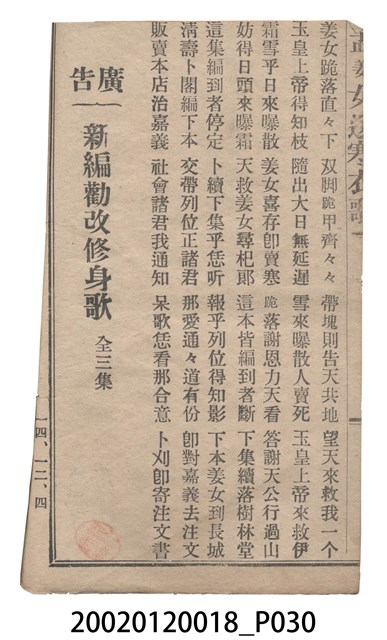 孟姜女送寒衣歌
姜女跪落直々下 双脚跪甲齊々々 帶塊則告天共地 望天來救我一个
玉皇上帝得知枝 隨出大日無延遲 雪來曝散人賣死 玉皇上帝來救伊
霜雪乎日來曝散 姜女喜存卽賣寒 跪落謝恩力天看 答謝天公行過山
妨得日頭來曝霜 天救姜女尋杞郞 這本皆編到者斷 下集續落樹林堂
這集編到者停定 卜續下集乎恁听 報乎列位得知影 下本姜女到長城
淸濤卜閣編下本 交帶列位正諸君 那愛通々道有份 卽對嘉義去注文
販賣本店治嘉義 社會諸君我通知 呆歌恁看那合意 卜刈卽寄注文書
廣告
新編勸改修身歌 全三集
一四、一二、四
20020120018_P030